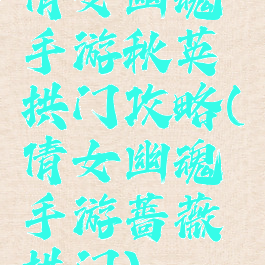 倩女幽魂
手游秋英
拱门攻略(
倩女幽魂
手游蔷薇
拱门)